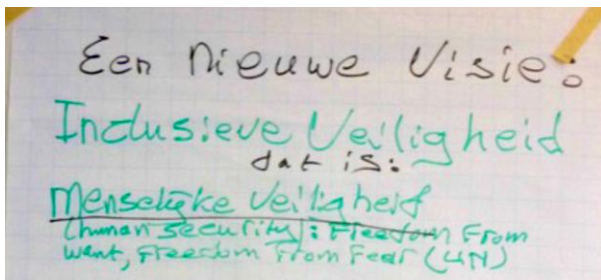 Een nieuwe Visie:
Inclusieve Veiligheid
dat is:
Menselijke Veiligheid
(human security): Freedom From
want, Freedom From Fear (UN)